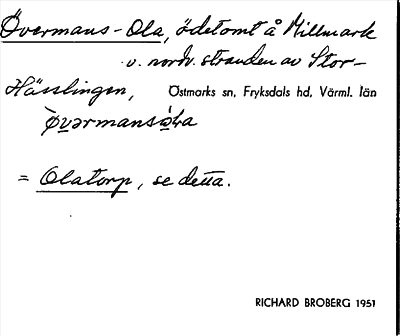 Övermans-Ola, ödetomt å Millmark
v. nordv. stranden av Stor-
Hässlingen, Östmarks sn, Fryksdals hd, Värml. län
övərmansola
= Olatorp, se detta.
RICHARD BROBERG 1951